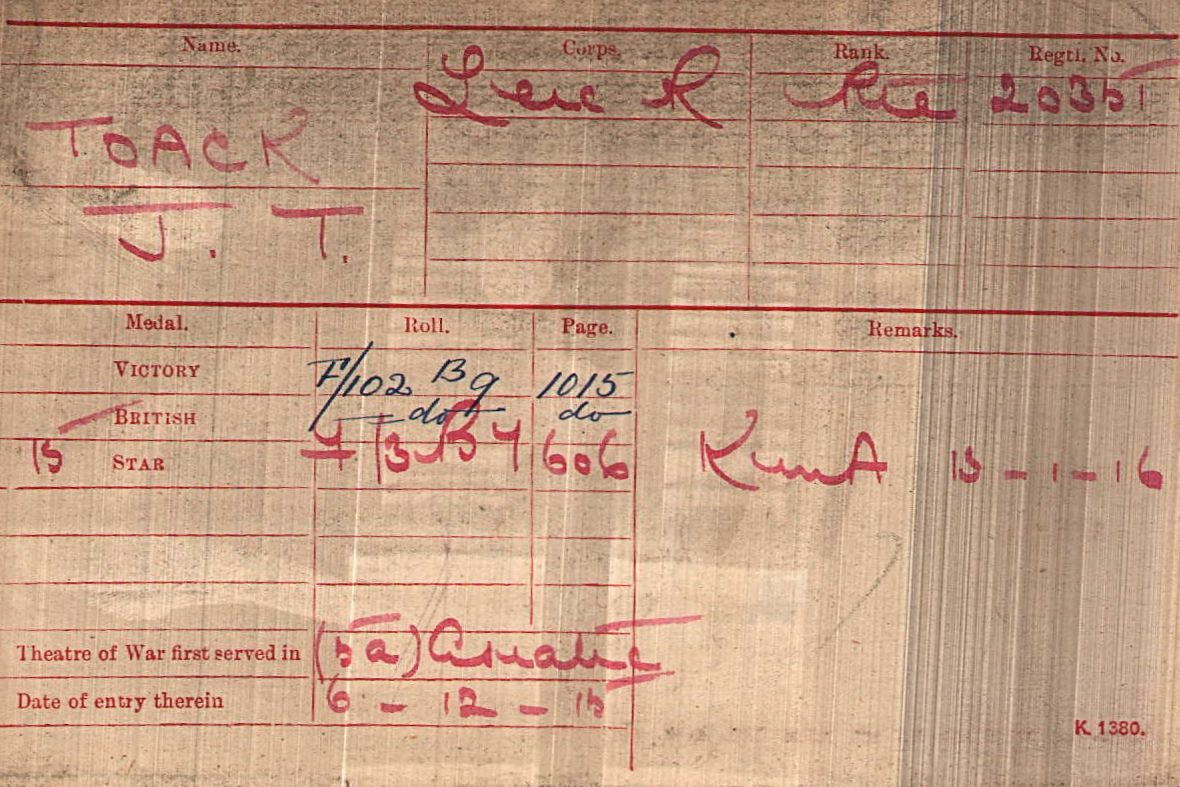 Name. Corps. Rank. Regtl. No.
Leic R Pte 20351
TOACK
J. T.
Medal. Roll. Page. Remarks.
VICTORY F/102 B9 1015
BRITISH do do
15 STAR 606 K in A 13-1-16
Theatre of War first served in (5a) Asiatic
Date of entry therein 6-12-15
K. 1380.